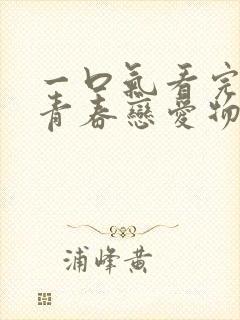 一口氣看完
青春戀愛物
浦峰黄